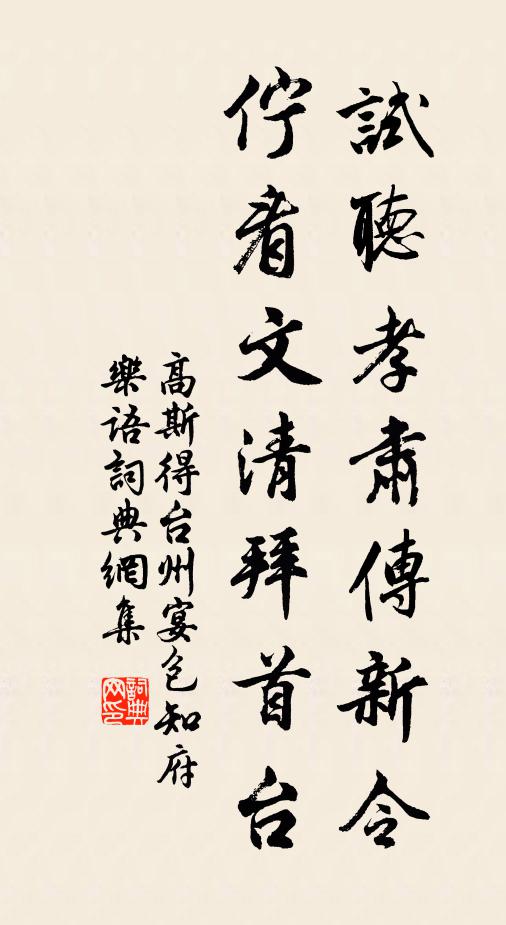 試聽孝肅傳新令
佇看文清拜首台
高斯得台州宴包知府樂語詞典網集
詞典網印